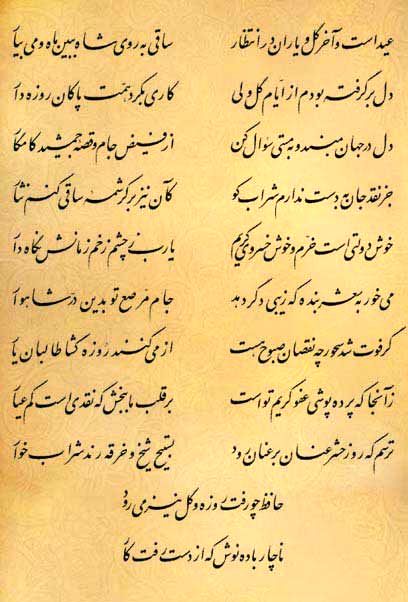 عید است و آخر گل و یاران در انتظار ساقی به روی شاه ببین ماه و می بیار
دل برگرفته بودم از ایّام گل ولی کاری بکرد همّت پاکان روزه دار
دل در جهان مبند و به مستی سؤال کن از فیض جام و قصّه جمشید کامگار
جز نقد جان به دست ندارم شراب کو کآن نیز بر کرشمه ساقی کنم نثار
خوش دولتی است خرّم و خوش خسروی کریم یارب ز چشم زخم زمانش نگاه دار
می خور به شعر بنده که زیبی دگر دهد جام مرصّع تو بدین درّ شاهوار
گر فوت شد سحور چه نقصان صبوح هست از می کنند روزه گشا طالبان یار
زآنجا که پرده پوشی عفو کریم توست بر قلب ما ببخش که نقدی است کم عیار
ترسم که روز حشر عنان بر عنان رود تسبیح شیخ و خرقه رند شراب خوار
حافظ چو رفت روزه و گل نیز می رود
ناچار باده نوش که از دست رفت کار